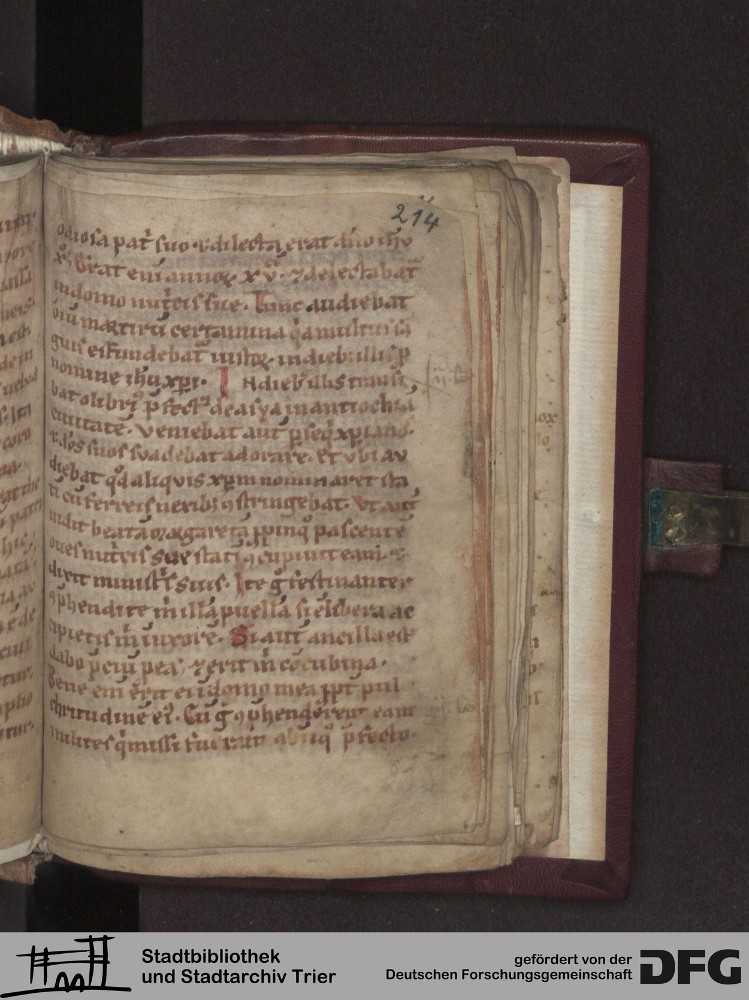 214
odiosa pat̄ suo ⁊ dilecta erat dn̄o ih̄u
x̄. Erat eni annoꝝ xv. ⁊ delectabat̄
in domo nut̄cis sue. Tunc audiebat
oīu martirū certamina qa multus sā
guis effundebat̄ iustoꝝ in dieb illis p̄
nomine ihu xpi. In dieb illis transi
bat olibriꝰ p̄fectꝰ de asya in antiochiā
ciuitatē. Veniebat aut̄ p̄seq xpianos
⁊ dos suos suadebat adorare. Et ubi au
diebat qd aliquis xpm nominaret sta
ti cū ferreis nexibꝫ ꝯstringebat. Vt aut̄
uidit beatā margaretā ppinq pascente
oues nut̄cis sue stati ꝯcupiuit eam. ⁊
dixit ministris suis. Ite g festinanter
ꝯphendite m̄ illā puellā si e libera ac
cipietis m̄ in uxore. Si aut̄ ancilla est
dabo p̄ciū p ea, ⁊ erit m̄ cōcubina.
Bene eni erit ei i domo mea ppt pul
chritudine eiꝰ. Cū g ꝯphendērent eam
milites q̄ missi fuerant ab p̄fecto.
Stadtbibliothek
und Stadtarchiv Trier
gefördert von der
Deutschen Forschungsgemeinschaft
DFG